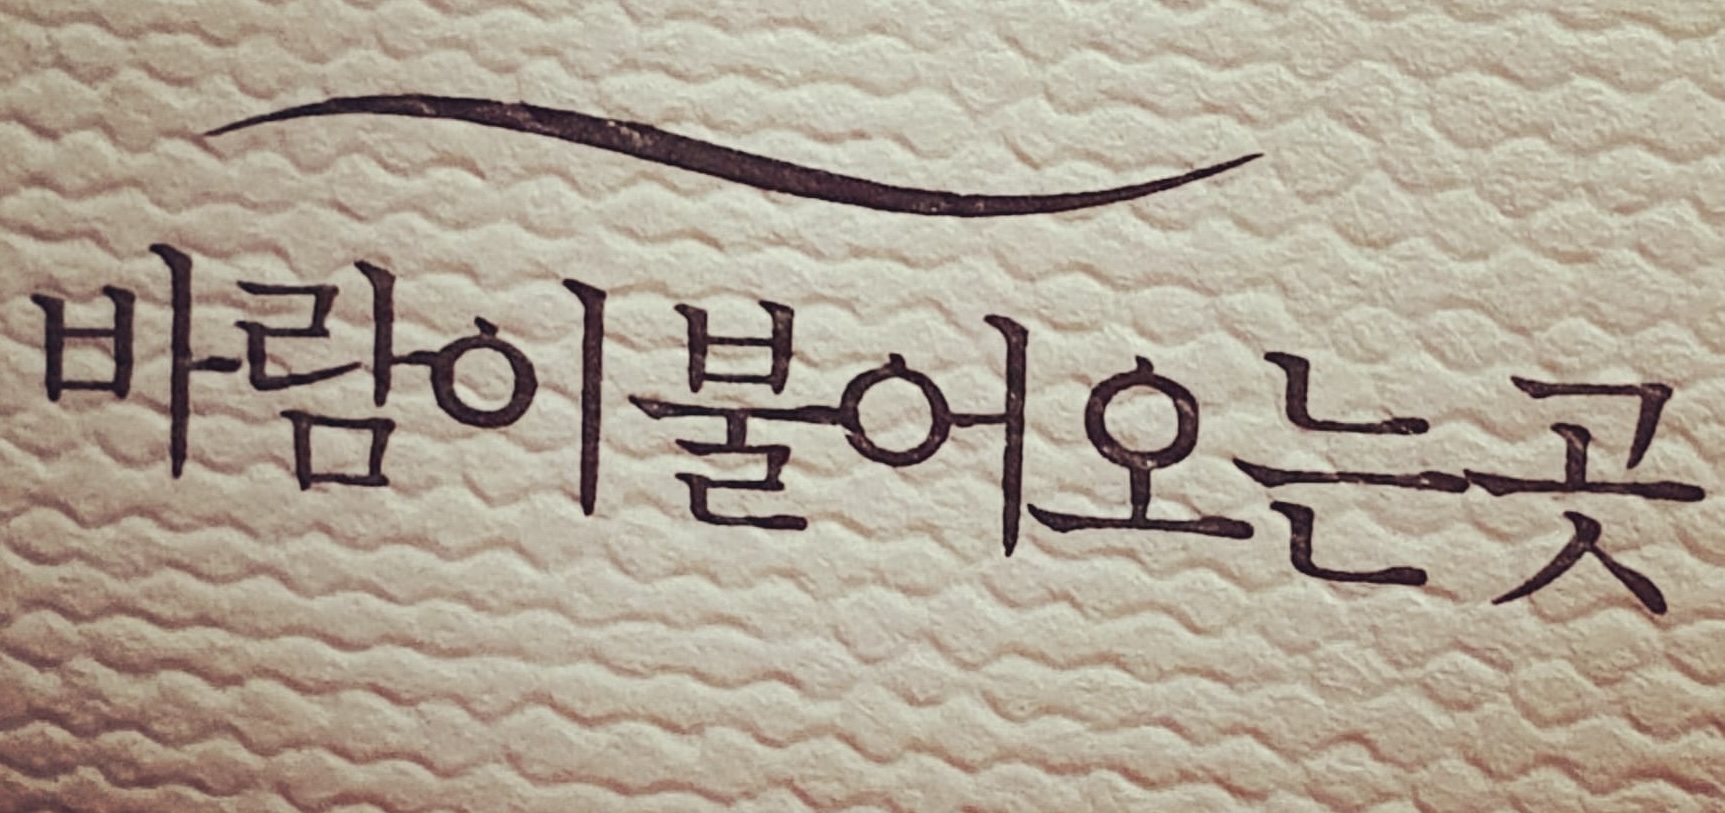 바람이불어오는곳